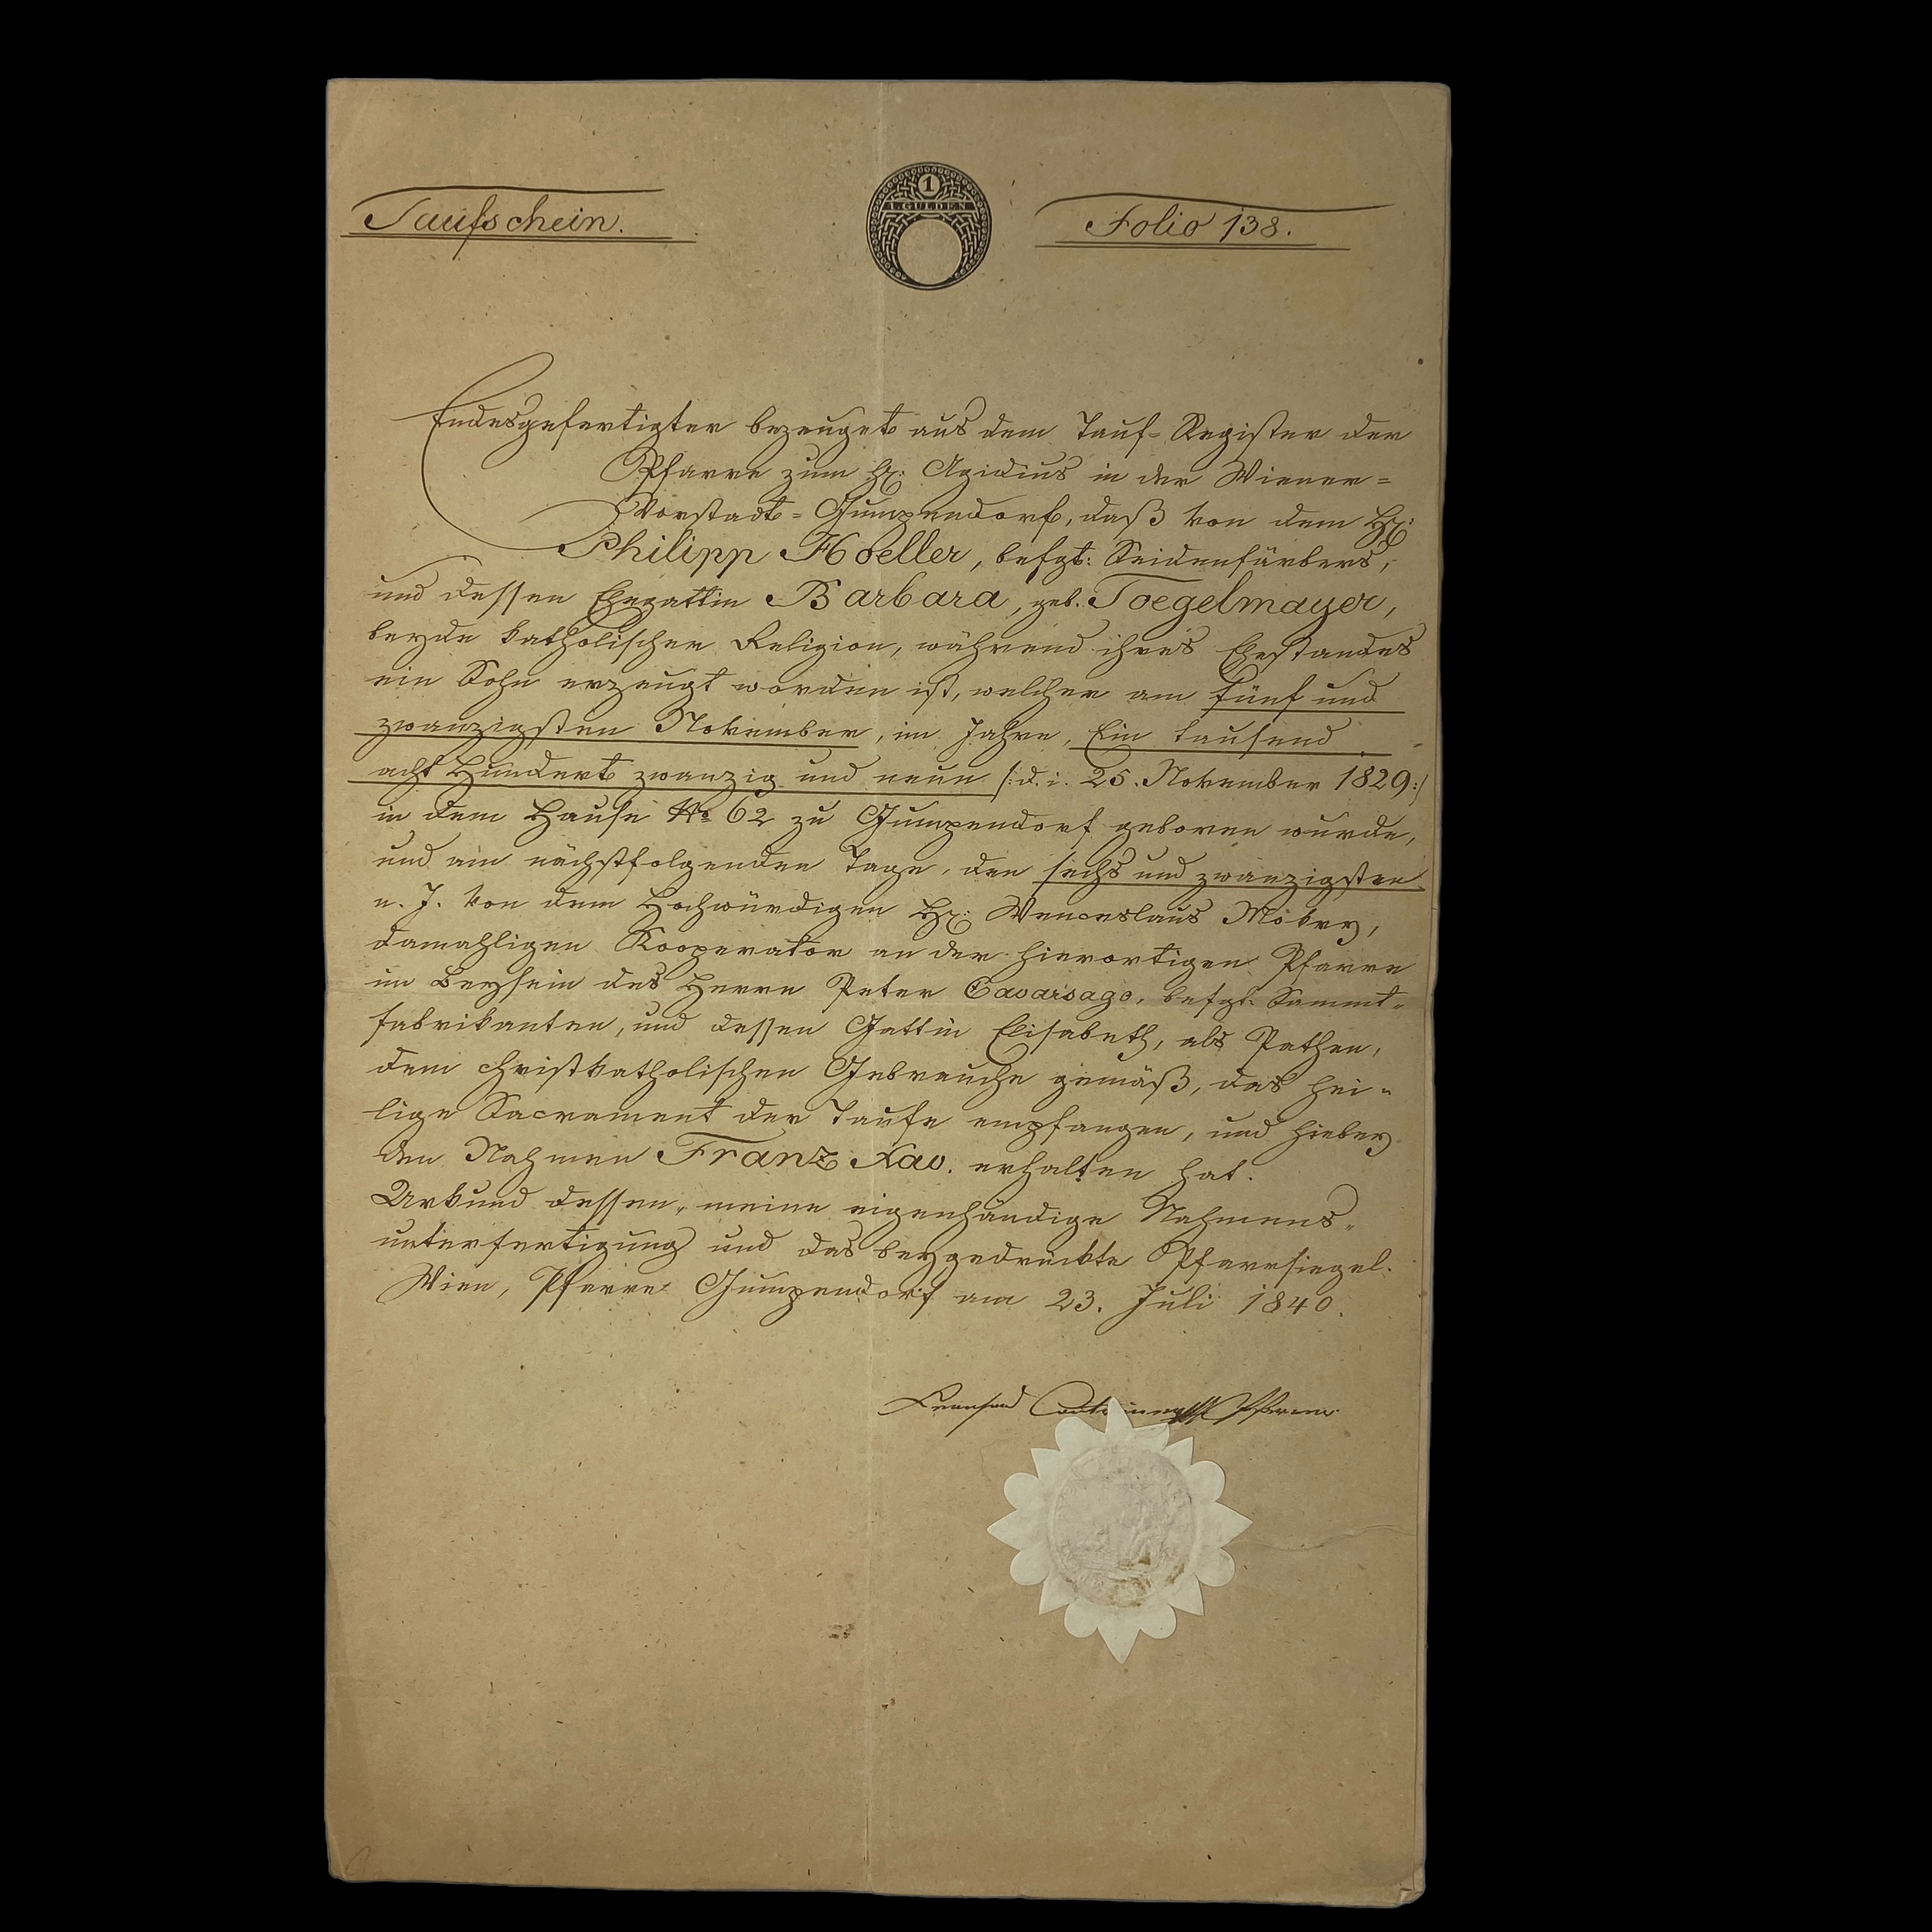 Taufschein.
1
1. GULDEN
Folio 138.
Endesgefertigter bezeuget aus dem Tauf-Register der
Pfarre zum h: Aegidius in der Wiener=
Vorstadt=Gumpendorf, daß von dem H:
Philipp Hoeller, befgt: Seidenfärbers,
und dessen Ehegattin Barbara, geb. Toegelmayer,
beyde katholischer Religion, während ihres Ehestandes
ein Sohn erzeugt worden ist, welcher am fünf und
zwanzigsten November, im Jahre, Ein tausend
acht Hundert zwanzig und neun /: d. i. 25. November 1829 :/
in dem Hause No 62 zu Gumpendorf geboren wurde,
und am nächstfolgenden Tage, den sechs und zwanzigsten
n. J. von dem Hochwürdigen H: Wenceslaus Mokry,
damahligen Kooperator an der hierortigen Pfarre
im Beysein des Herrn Peter Cavarsago, befgt: Sammt=
fabrikanten, und dessen Gattin Elisabeth, als Pathen,
dem christkatholischen Gebrauche gemäß, das hei=
lige Sacrament der Taufe empfangen, und hiebey
den Nahmen Franz Xav. erhalten hat.
Urkund dessen, meine eigenhändige Nahmens=
unterfertigung und das beygedrückte Pfarrsiegel.
Wien, Pfarre Gumpendorf am 23. Juli 1840.
Pfarrer